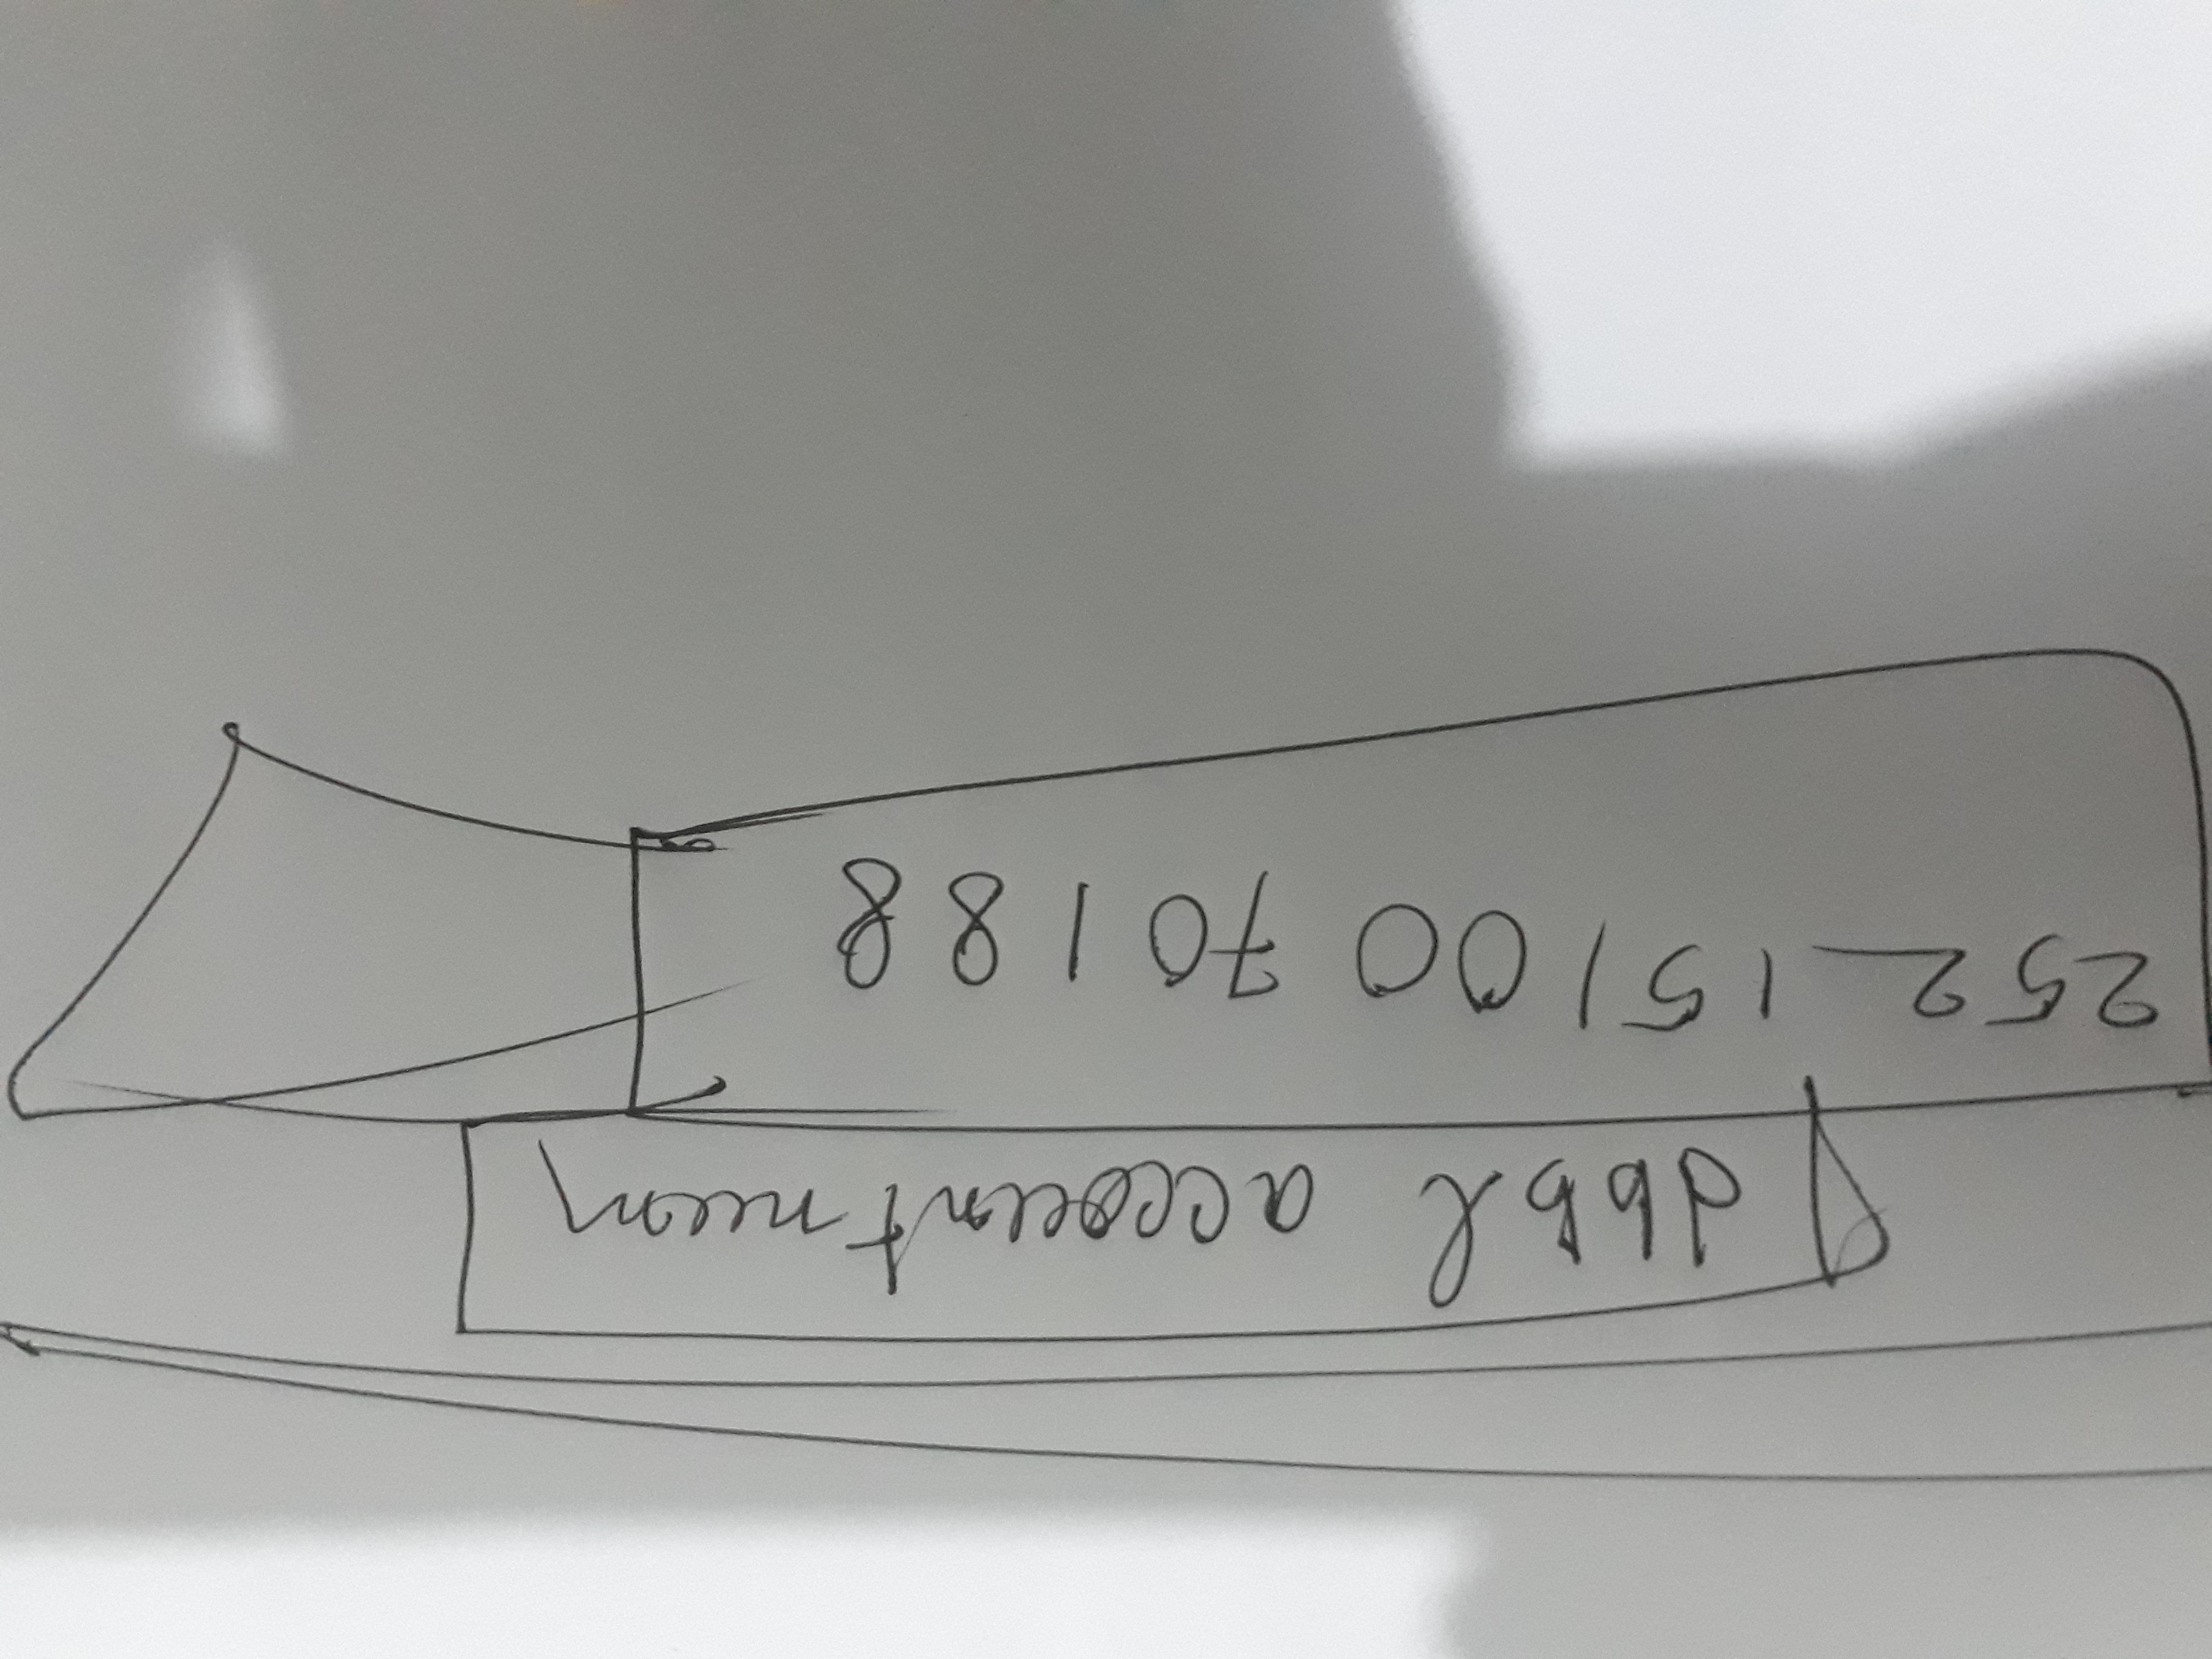 dbbl account num
252 151 00 70188